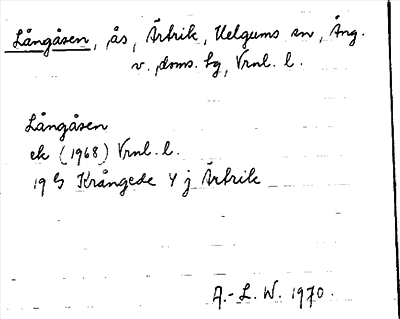 Långåsen, ås, Ärtrik, Helgums sn, Ång.
v. doms. lg, Vrnl. l.
Långåsen
ek (1968) Vrnl. l.
19 G Krångede 4 j Ärtrik
A.-L. W. 1970.